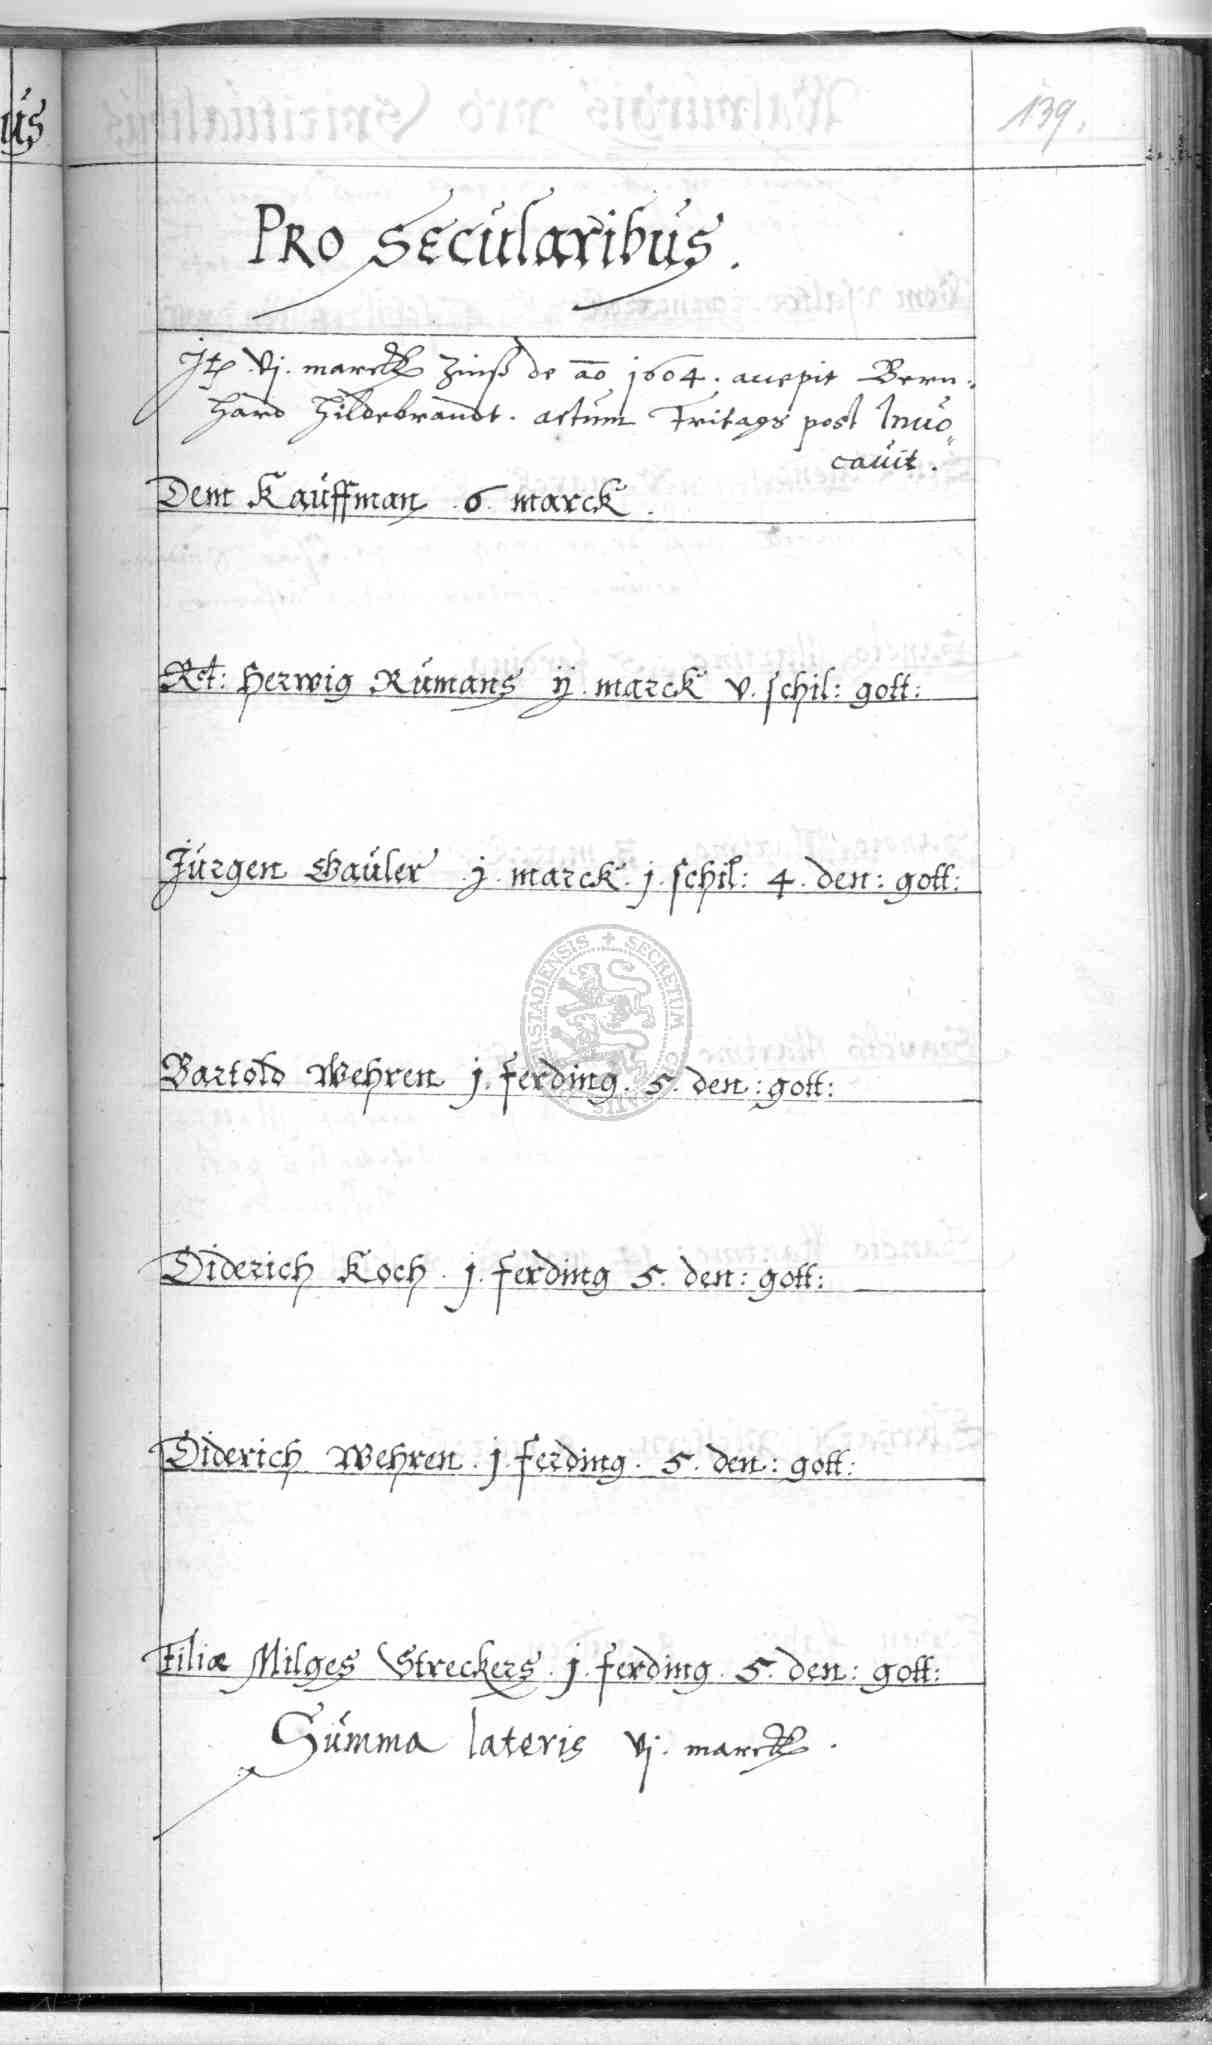 139.
us
Pro secularibus.
Jt. vj. marck Zinß de ao 1604. accepit Bern-
hard Hildebrandt. actum Fritags post Invo-
cavit.
Dem Kauffman .6. marck.
Rct: Herwig Rumans ij. marck v. schil: gott:
Jurgen Gauler .j. marck. j. schil: 4. den: gott:
Bartold Wehren j. ferding. 5. den: gott:
Diderich Koch. j. ferding 5. den: gott:
Diderich Wehren. j. ferding. 5. den: gott:
Filiæ Milges Streckers. j. ferding. 5. den: gott:
Summa lateris vj. marck.